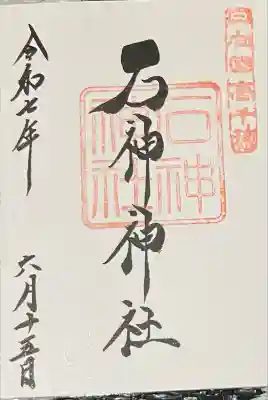 石神神社
石神神社
令和七年
六月十五日